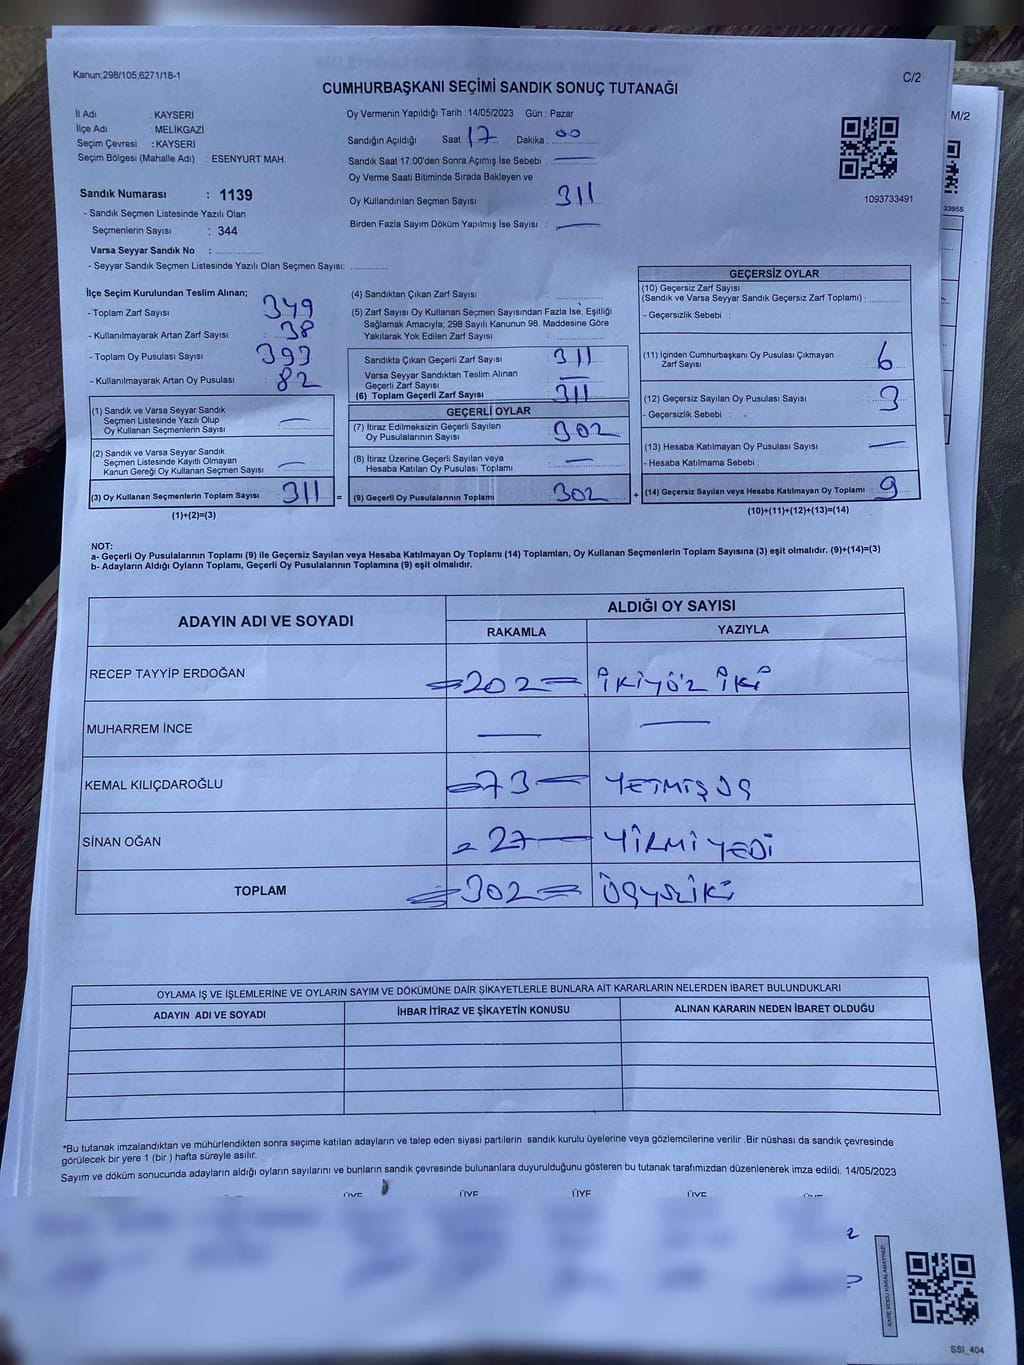 Kanun;298/105,6271/18-1
C/2
CUMHURBAŞKANI SEÇİMİ SANDIK SONUÇ TUTANAĞI
M/2
İl Adı : KAYSERİ
İlçe Adı : MELİKGAZİ
Seçim Çevresi : KAYSERİ
Seçim Bölgesi (Mahalle Adı) : ESENYURT MAH.
Sandık Numarası : 1139
- Sandık Seçmen Listesinde Yazılı Olan
Seçmenlerin Sayısı : 344
Varsa Seyyar Sandık No :
- Seyyar Sandık Seçmen Listesinde Yazılı Olan Seçmen Sayısı:
Oy Vermenin Yapıldığı Tarih : 14/05/2023 Gün : Pazar
Sandığın Açıldığı Saat 17 Dakika : 00
Sandık Saat 17:00'den Sonra Açımış İse Sebebi : —
Oy Verme Saati Bitiminde Sırada Bekleyen ve
Oy Kullandırılan Seçmen Sayısı : 311
Birden Fazla Sayım Döküm Yapılmış İse Sayısı : —
1093733491
33955
İlçe Seçim Kurulundan Teslim Alınan;
- Toplam Zarf Sayısı : 349
- Kullanılmayarak Artan Zarf Sayısı : 38
- Toplam Oy Pusulası Sayısı : 393
- Kullanılmayarak Artan Oy Pusulası : 82
(1) Sandık ve Varsa Seyyar Sandık
Seçmen Listesinde Yazılı Olup
Oy Kullanan Seçmenlerin Sayısı : —
(2) Sandık ve Varsa Seyyar Sandık
Seçmen Listesinde Kayıtlı Olmayan
Kanun Gereği Oy Kullanan Seçmen Sayısı : —
(3) Oy Kullanan Seçmenlerin Toplam Sayısı : 311 =
(1)+(2)=(3)
(4) Sandıktan Çıkan Zarf Sayısı :
(5) Zarf Sayısı Oy Kullanan Seçmen Sayısından Fazla İse, Eşitliği
Sağlamak Amacıyla; 298 Sayılı Kanunun 98. Maddesine Göre
Yakılarak Yok Edilen Zarf Sayısı :
Sandıkta Çıkan Geçerli Zarf Sayısı : 311
Varsa Seyyar Sandıktan Teslim Alınan
Geçerli Zarf Sayısı : —
(6) Toplam Geçerli Zarf Sayısı : 311
GEÇERLİ OYLAR
(7) İtiraz Edilmeksizin Geçerli Sayılan
Oy Pusulalarının Sayısı : 302
(8) İtiraz Üzerine Geçerli Sayılan veya
Hesaba Katılan Oy Pusulası Toplamı : —
(9) Geçerli Oy Pusulalarının Toplamı : 302 +
GEÇERSİZ OYLAR
(10) Geçersiz Zarf Sayısı
(Sandık ve Varsa Seyyar Sandık Geçersiz Zarf Toplamı) :
- Geçersizlik Sebebi :
(11) İçinden Cumhurbaşkanı Oy Pusulası Çıkmayan
Zarf Sayısı : 6
(12) Geçersiz Sayılan Oy Pusulası Sayısı : 3
- Geçersizlik Sebebi :
(13) Hesaba Katılmayan Oy Pusulası Sayısı : —
- Hesaba Katılmama Sebebi :
(14) Geçersiz Sayılan veya Hesaba Katılmayan Oy Toplamı : 9
(10)+(11)+(12)+(13)=(14)
NOT:
a- Geçerli Oy Pusulalarının Toplamı (9) ile Geçersiz Sayılan veya Hesaba Katılmayan Oy Toplamı (14) Toplamları, Oy Kullanan Seçmenlerin Toplam Sayısına (3) eşit olmalıdır. (9)+(14)=(3)
b- Adayların Aldığı Oyların Toplamı, Geçerli Oy Pusulalarının Toplamına (9) eşit olmalıdır.
ADAYIN ADI VE SOYADI
ALDIĞI OY SAYISI
RAKAMLA YAZIYLA
RECEP TAYYİP ERDOĞAN =202= İKİYÜZ İKİ
MUHARREM İNCE — —
KEMAL KILIÇDAROĞLU =73= YETMİŞ ÜÇ
SİNAN OĞAN =27— YİRMİ YEDİ
TOPLAM =302= ÜÇYÜZ İKİ
OYLAMA İŞ VE İŞLEMLERİNE VE OYLARIN SAYIM VE DÖKÜMÜNE DAİR ŞİKAYETLERLE BUNLARA AİT KARARLARIN NELERDEN İBARET BULUNDUKLARI
ADAYIN ADI VE SOYADI İHBAR İTİRAZ VE ŞİKAYETİN KONUSU ALINAN KARARIN NEDEN İBARET OLDUĞU
*Bu tutanak imzalandıktan ve mühürlendikten sonra seçime katılan adayların ve talep eden siyasi partilerin sandık kurulu üyelerine veya gözlemcilerine verilir .Bir nüshası da sandık çevresinde
görülecek bir yere 1 (bir ) hafta süreyle asılır.
Sayım ve döküm sonucunda adayların aldığı oyların sayılarını ve bunların sandık çevresinde bulunanlara duyurulduğunu gösteren bu tutanak tarafımızdan düzenlenerek imza edildi. 14/05/2023
ÜYE ÜYE ÜYE ÜYE ÜYE
KARE KODU KARALAMAYINIZ!
SSI_404